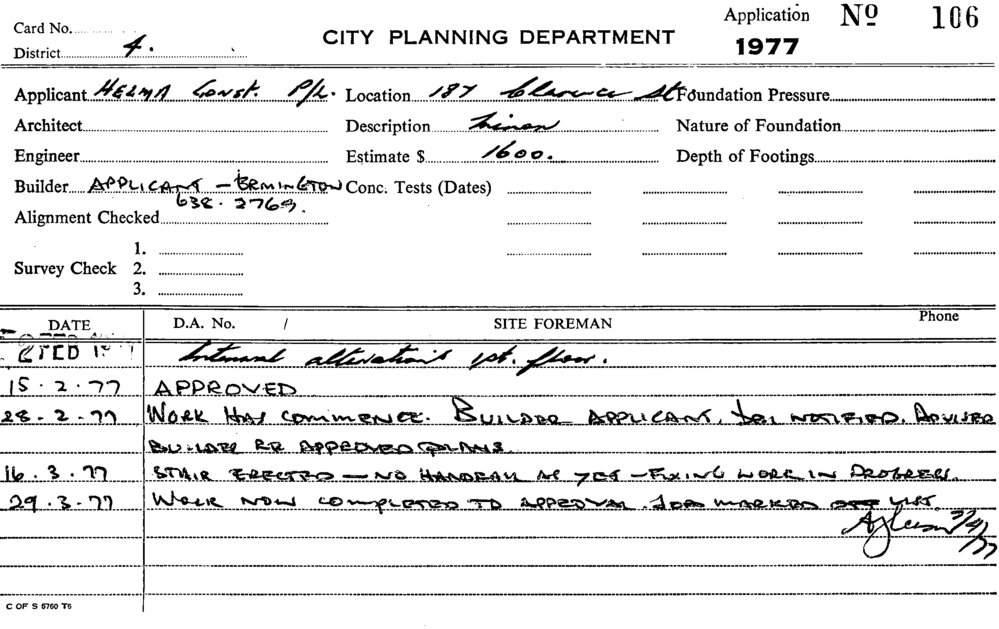 Card No.
Application Nº 106
District 4.
CITY PLANNING DEPARTMENT
1977
Applicant HELMA Const. P/L. Location 187 Clarence St Foundation Pressure
Architect Description Minor Nature of Foundation
Engineer Estimate $ 1600. Depth of Footings
Builder APPLICANT - ERMINGTON Conc. Tests (Dates)
638.2769.
Alignment Checked
1.
Survey Check 2.
3.
DATE D.A. No. / SITE FOREMAN Phone
Internal alterations 1st. floor.
15.2.77 APPROVED
28.2.77 WORK HAS COMMENCE. BUILDER APPLICANT, NOTIFIED. ADVISED
BUILDER RE APPROVED PLANS.
16.3.77 STAIR ERECTED - NO HANDRAIL AS YET - FIXING WORK IN PROGRESS.
29.3.77 WORK NOW COMPLETED TO APPROVAL. JOB MARKED OFF LIST.
C OF S 5760 T6